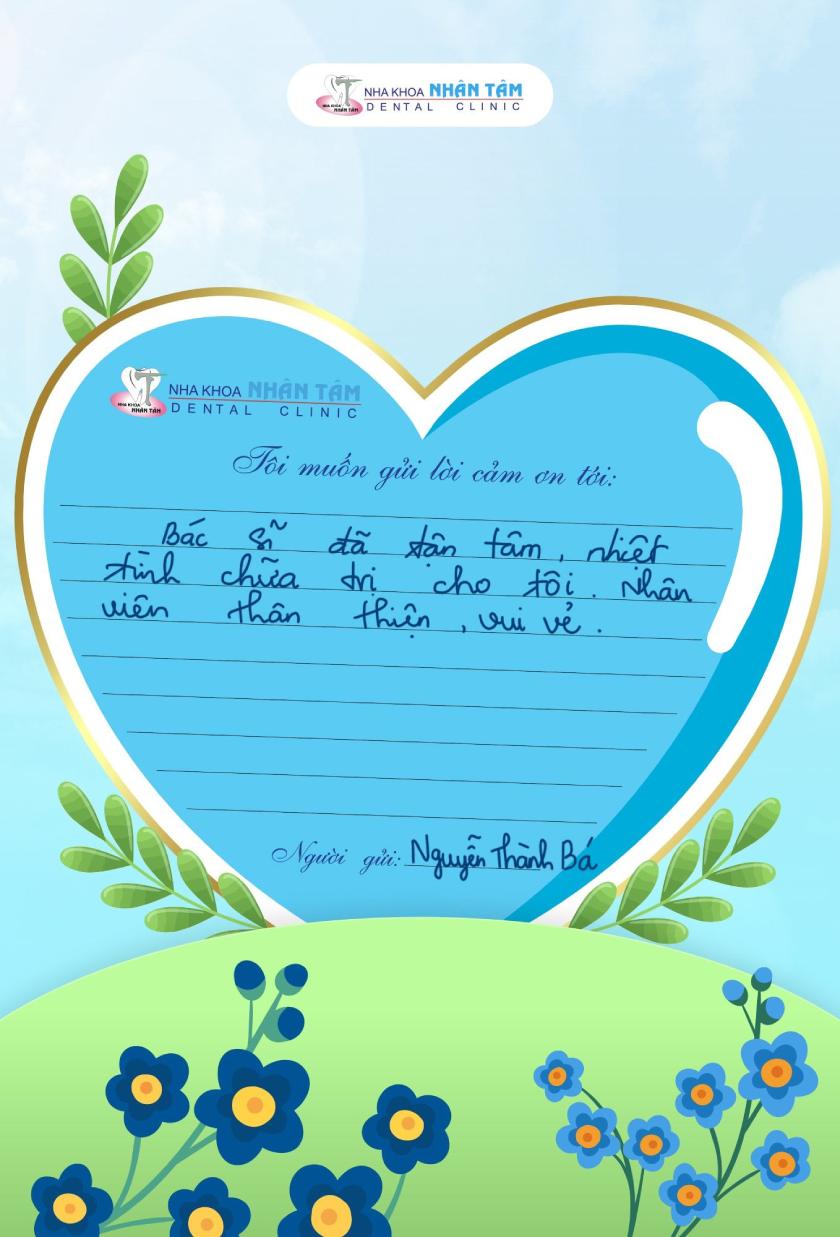 NHA KHOA NHÂN TÂM
DENTAL CLINIC
NHA KHOA
NHÂN TÂM
NHA KHOA NHÂN TÂM
DENTAL CLINIC
NHA KHOA
NHÂN TÂM
Tôi muốn gửi lời cảm ơn tới:
Bác sĩ đã tận tâm, nhiệt
tình chữa trị cho tôi. Nhân
viên thân thiện, vui vẻ.
Người gửi: Nguyễn Thành Bá